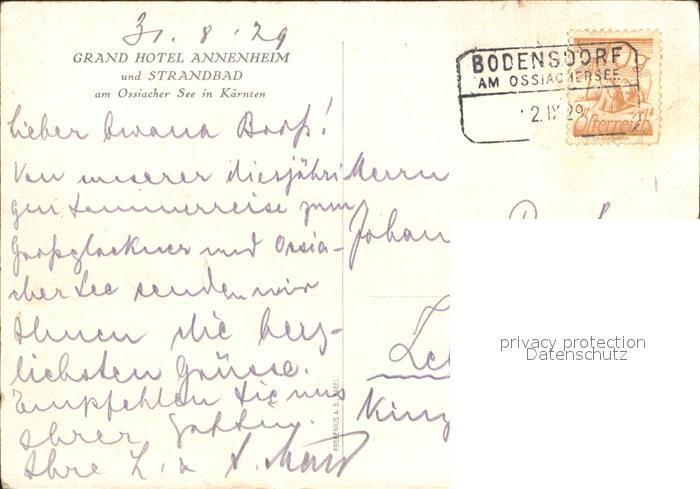 31. 8. 29
GRAND HOTEL ANNENHEIM
und STRANDBAD
am Ossiacher See in Kärnten
BODENSDORF
AM OSSIACHERSEE
2. IX. 29
Österreich
Lieber bwana
Von unserer diesjähri-
gen Sommerreise zum
Grossglockner und Ossia-
cher See senden wir
Ihnen die herz-
lichsten Grüsse.
Empfehlen Sie uns
Ihrer Gattin.
Ihre L. u
Herrn
Johan
privacy protection
Datenschutz
FROBENIUS A. G. BASEL